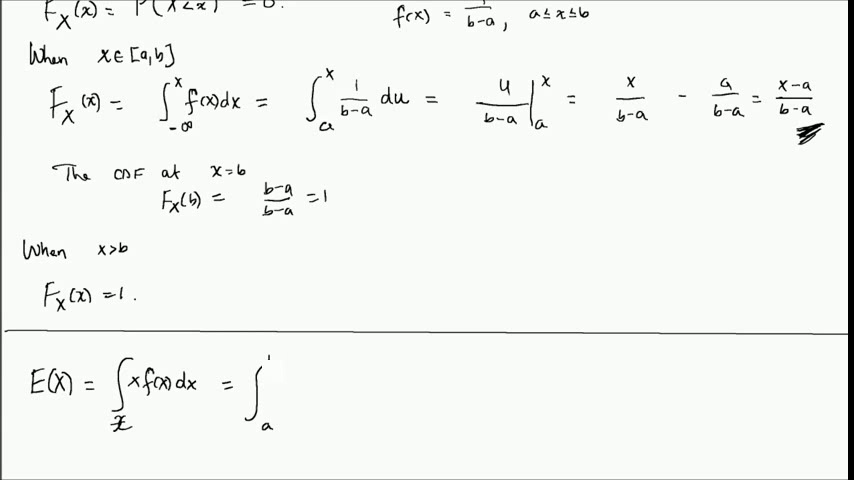 F_X(x) = P(X<x) = 0. f(x) = 1/(b-a), a≤x≤b
When x∈[a,b]
F_X(x) = ∫_{-∞}^{x} f(x)dx = ∫_{a}^{x} 1/(b-a) du = u/(b-a) |_{a}^{x} = x/(b-a) - a/(b-a) = (x-a)/(b-a)
The CDF at x=b
F_X(b) = (b-a)/(b-a) = 1
When x>b
F_X(x) = 1.
E(X) = ∫_{x} x f(x) dx = ∫_{a}